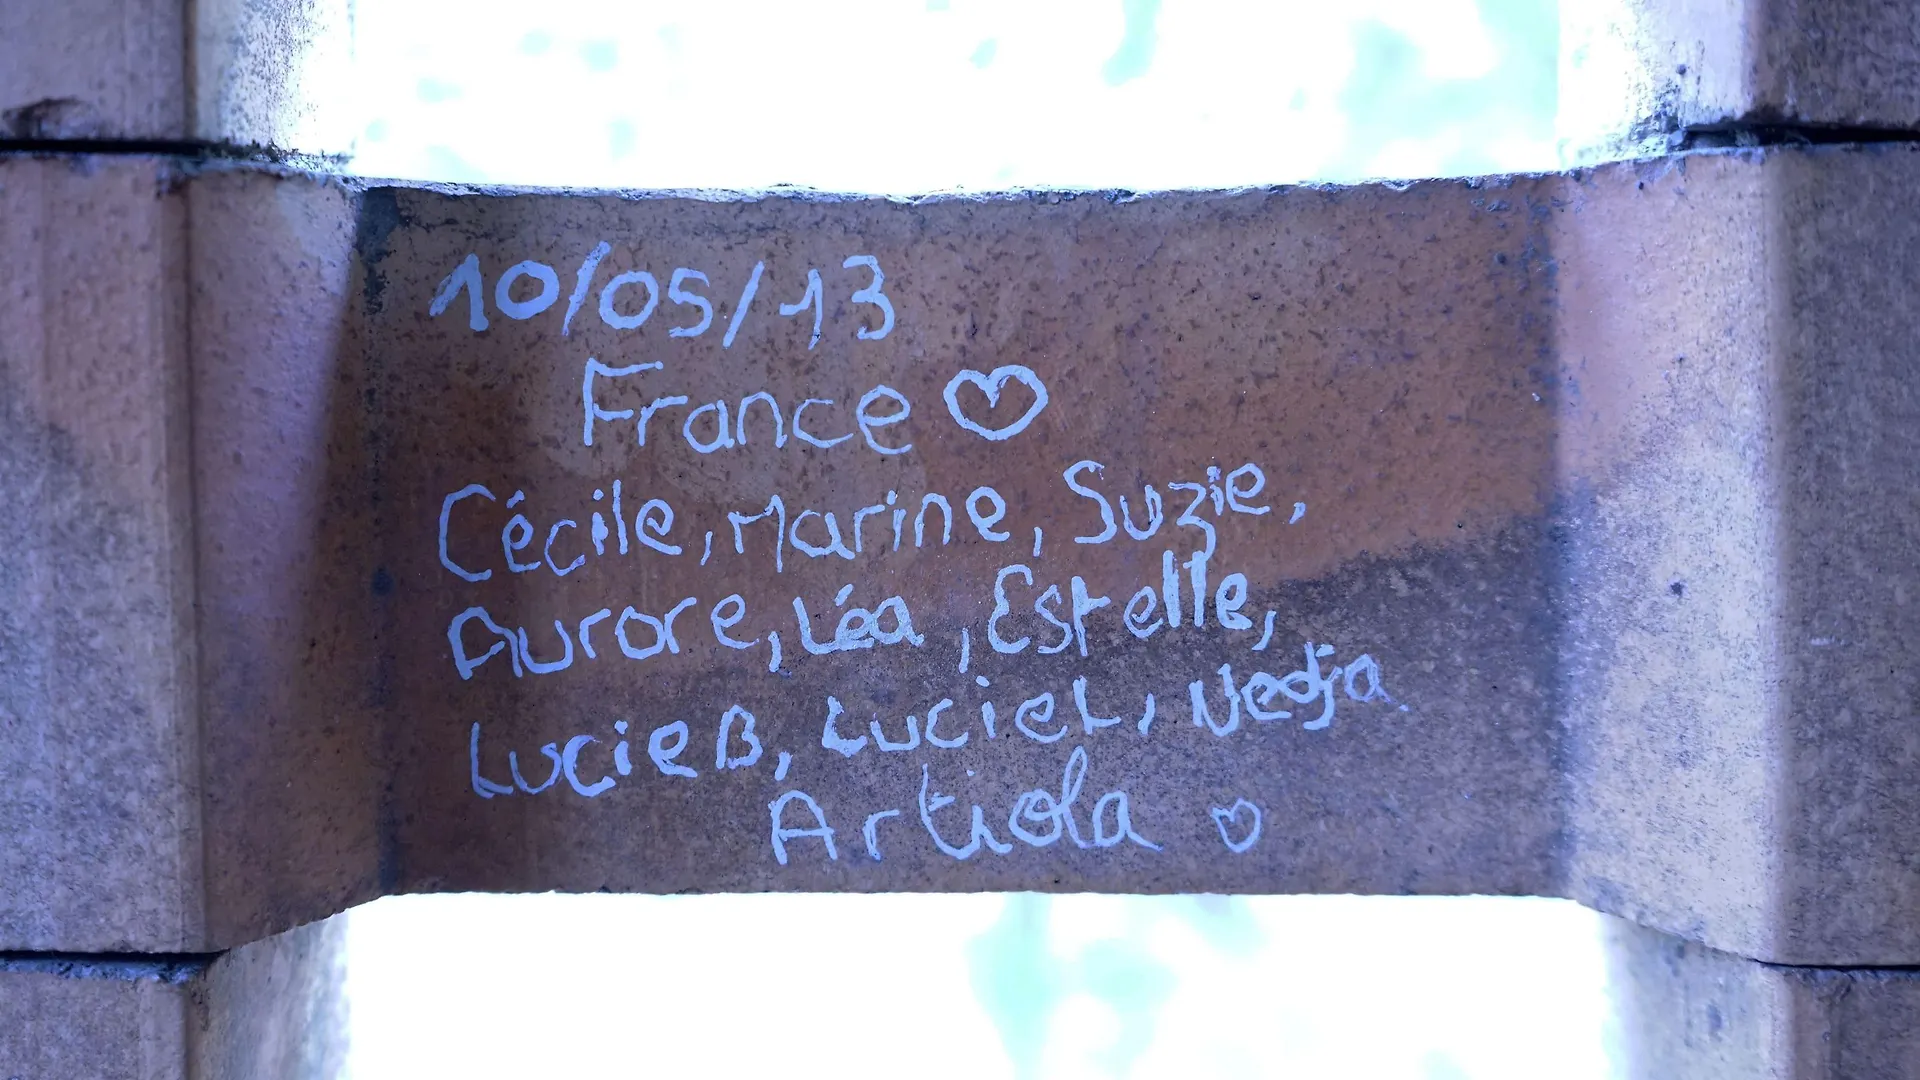 10/05/13
France ♡
Cécile, Marine, Suzie,
Aurore, Léa, Estelle,
Lucie B, Lucie L, Nedja
Artiola ♡